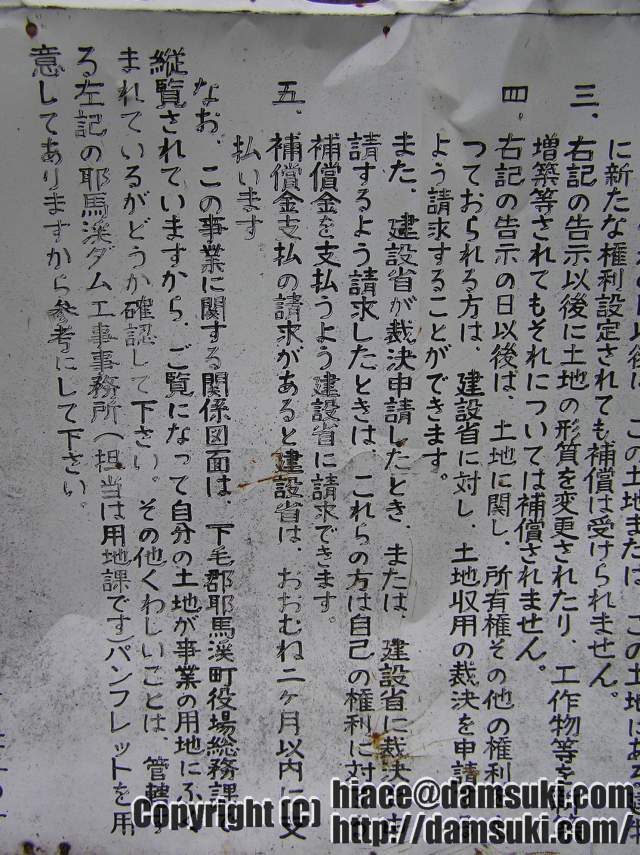 この土地または、この土地にある
に新たな権利設定されても補償は受けられません。
三、右記の告示以後に土地の形質を変更されたり、工作物等を
増築等されてもそれについては補償されません。
四、右記の告示の日以後は、土地に関し、所有権その他の権利
っておられる方は、建設省に対し、土地収用の裁決を申請
よう請求することができます。
また、建設省が裁決申請したとき、または、建設省に裁決
請するよう請求したときは、これらの方は自己の権利に対
補償金を支払うよう建設省に請求できます。
五、補償金支払の請求があると建設省は、おおむね二ヶ月以内に支
払います
なお、この事業に関する関係図面は、下毛郡耶馬渓町役場総務課
縦覧されていますから、ご覧になって自分の土地が事業の用地に
まれているがどうか確認して下さい。その他くわしいことは、管轄
る左記の耶馬渓ダム工事事務所(担当は用地課です)パンフレットを用
意してありますから参考にして下さい。
Copyright (C) hiace@damsuki.com
http://damsuki.com/